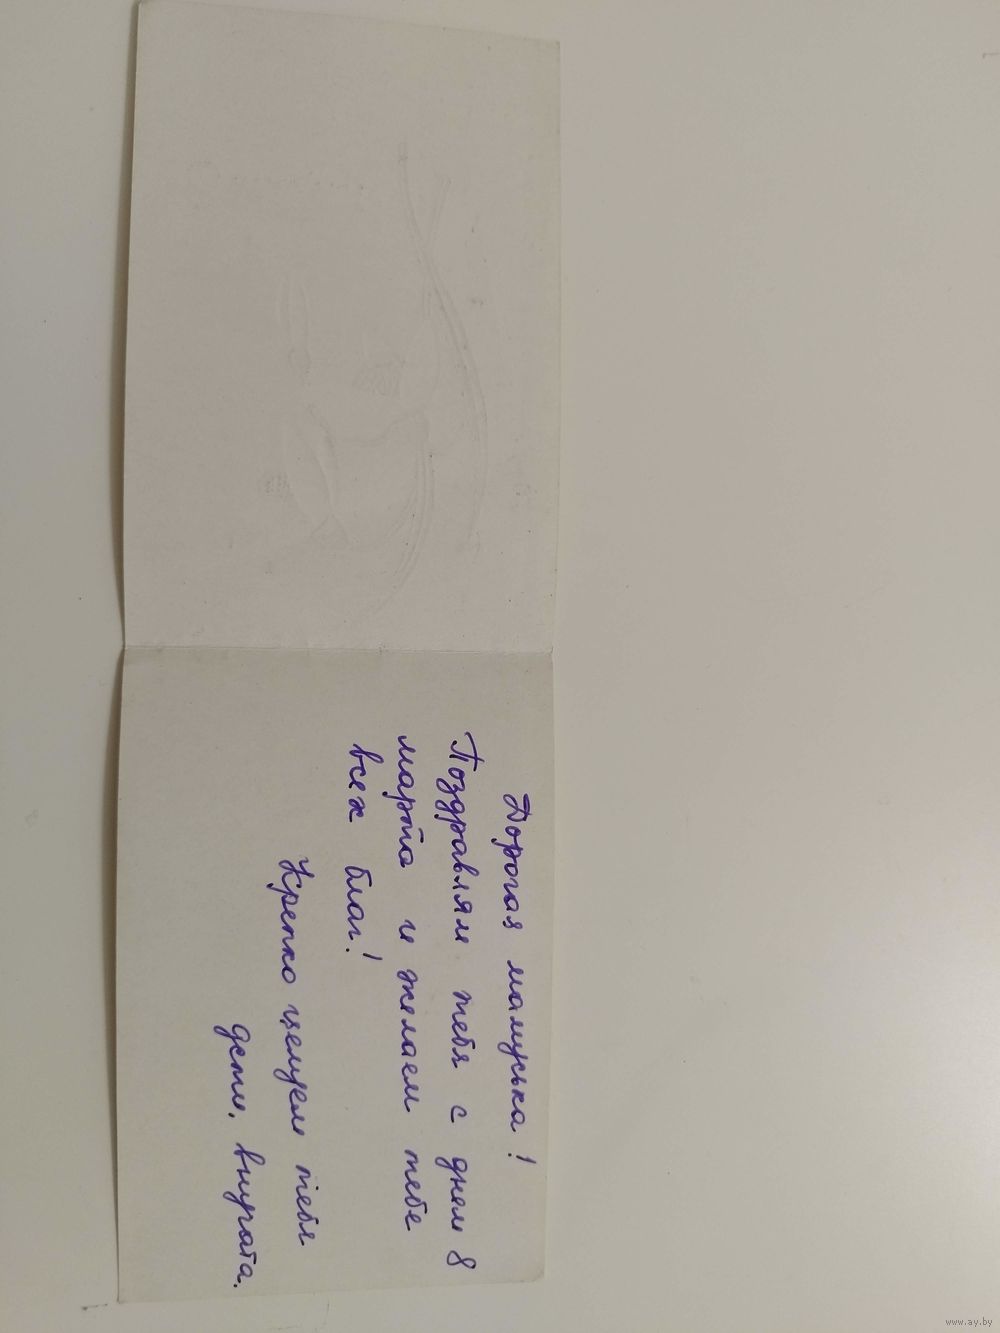 Дорогая мамуська!
Поздравляем тебя с днем 8
марта и желаем тебе
всех благ!
Крепко целуем тебя
дети, внучата.
www.ay.by